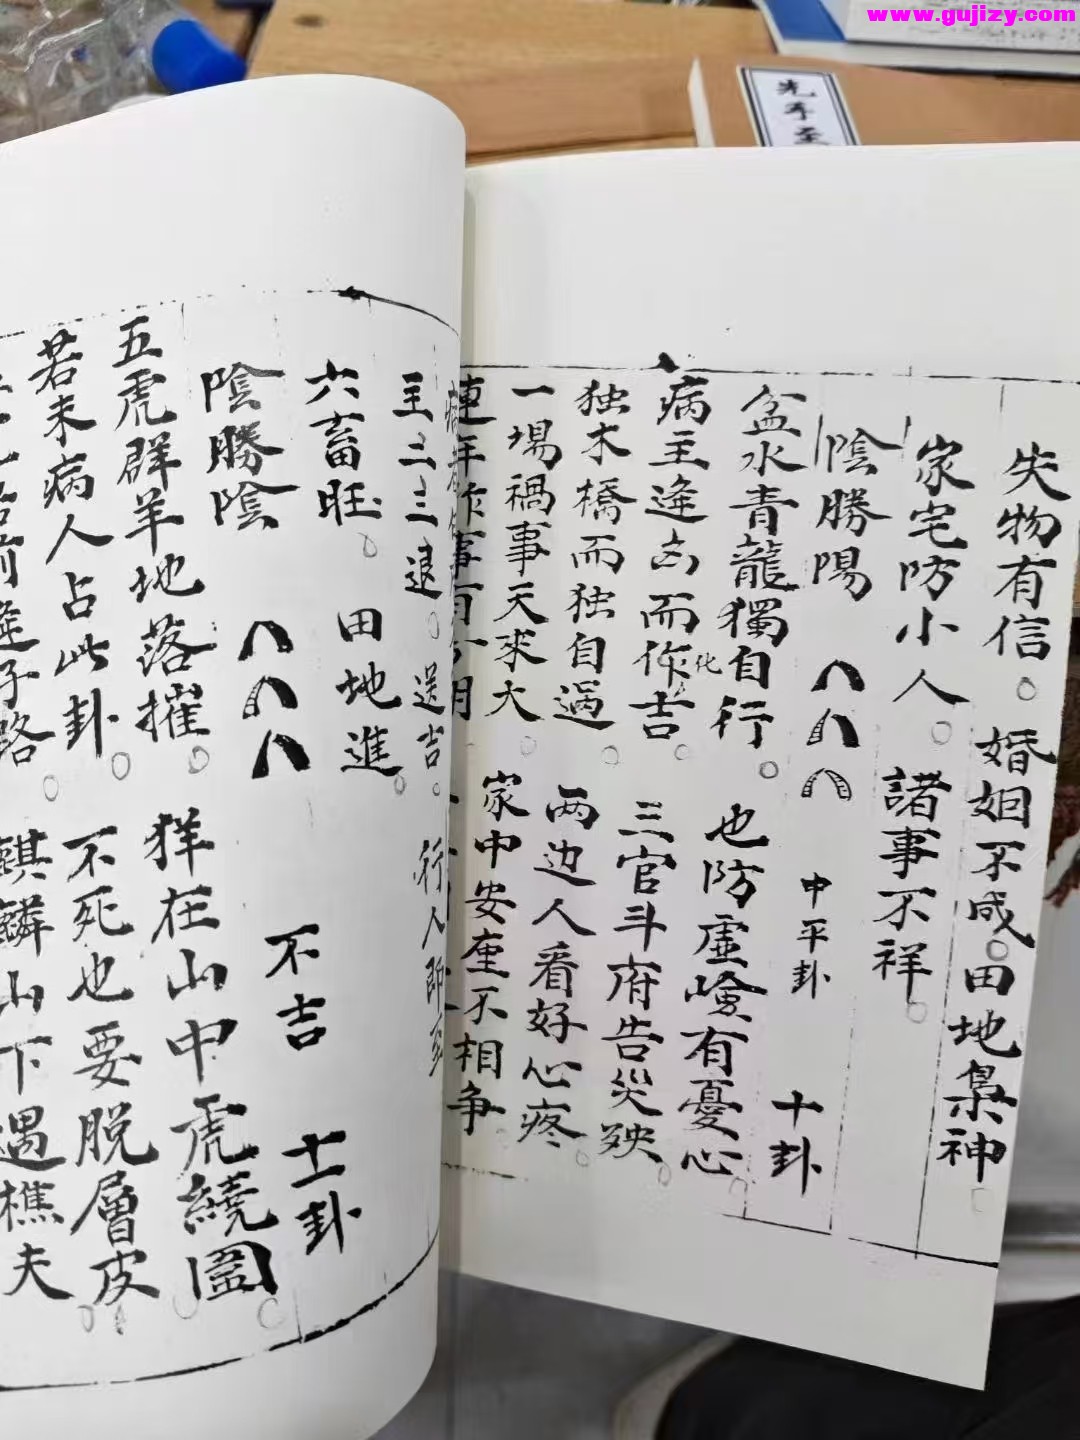 www.gujizy.com
失物有信。婚姻不成。田地梟神。
家宅防小人。諸事不祥。
陰勝陽 中平卦 十卦
盆水青龍獨自行。也防虛嶮有憂心。
病主逢凶而作化吉。三官斗府告災殃。
独木橋而独自過。两边人看好心疼。
一場禍事天來大。家中安座不相争。
連年作事
主二三退。送吉。行人即至
六畜旺。田地進。
陰勝陰 不吉 十一卦
五虎群羊地落摧。羊在山中虎繞圖。
若未病人占此卦。不死也要脱層皮。
麒麟山下遇樵夫